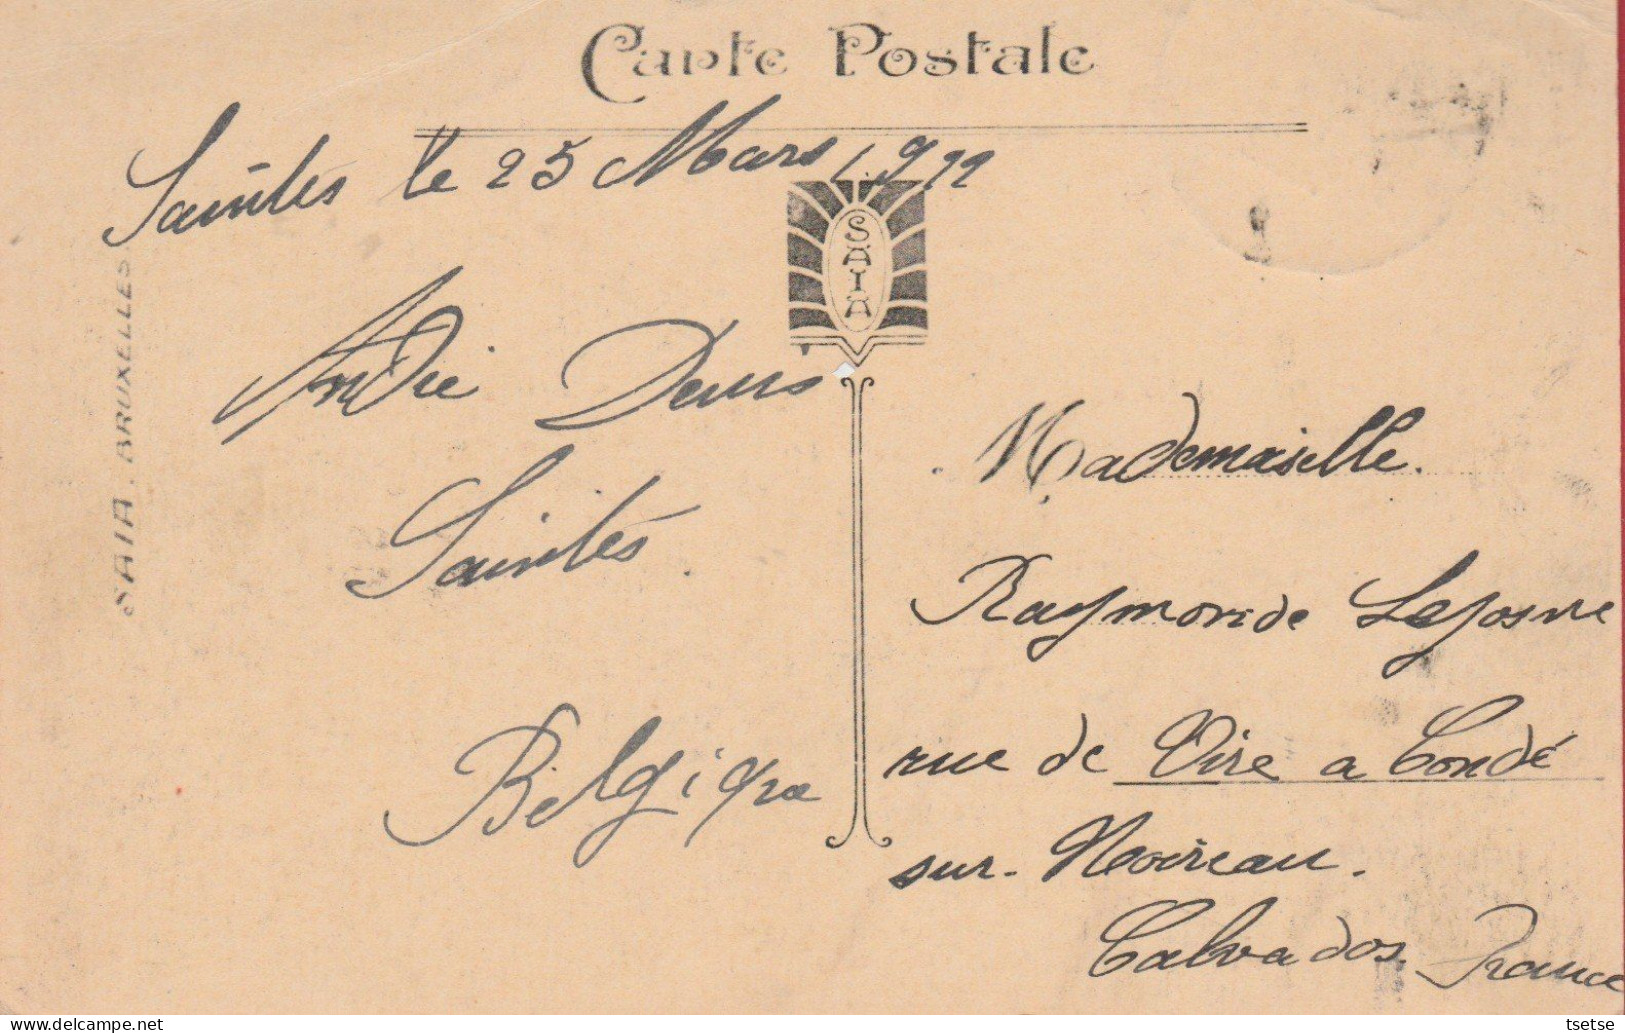 Carte Postale
Saintes le 25 Mars 1922
SAIA
SAIA. BRUXELLES
André Denis
Saintes.
Belgique
Mademoiselle.
Raymonde Lejosne
rue de Vire a Condé
sur-Noireau.
Calvados. France
tsetse